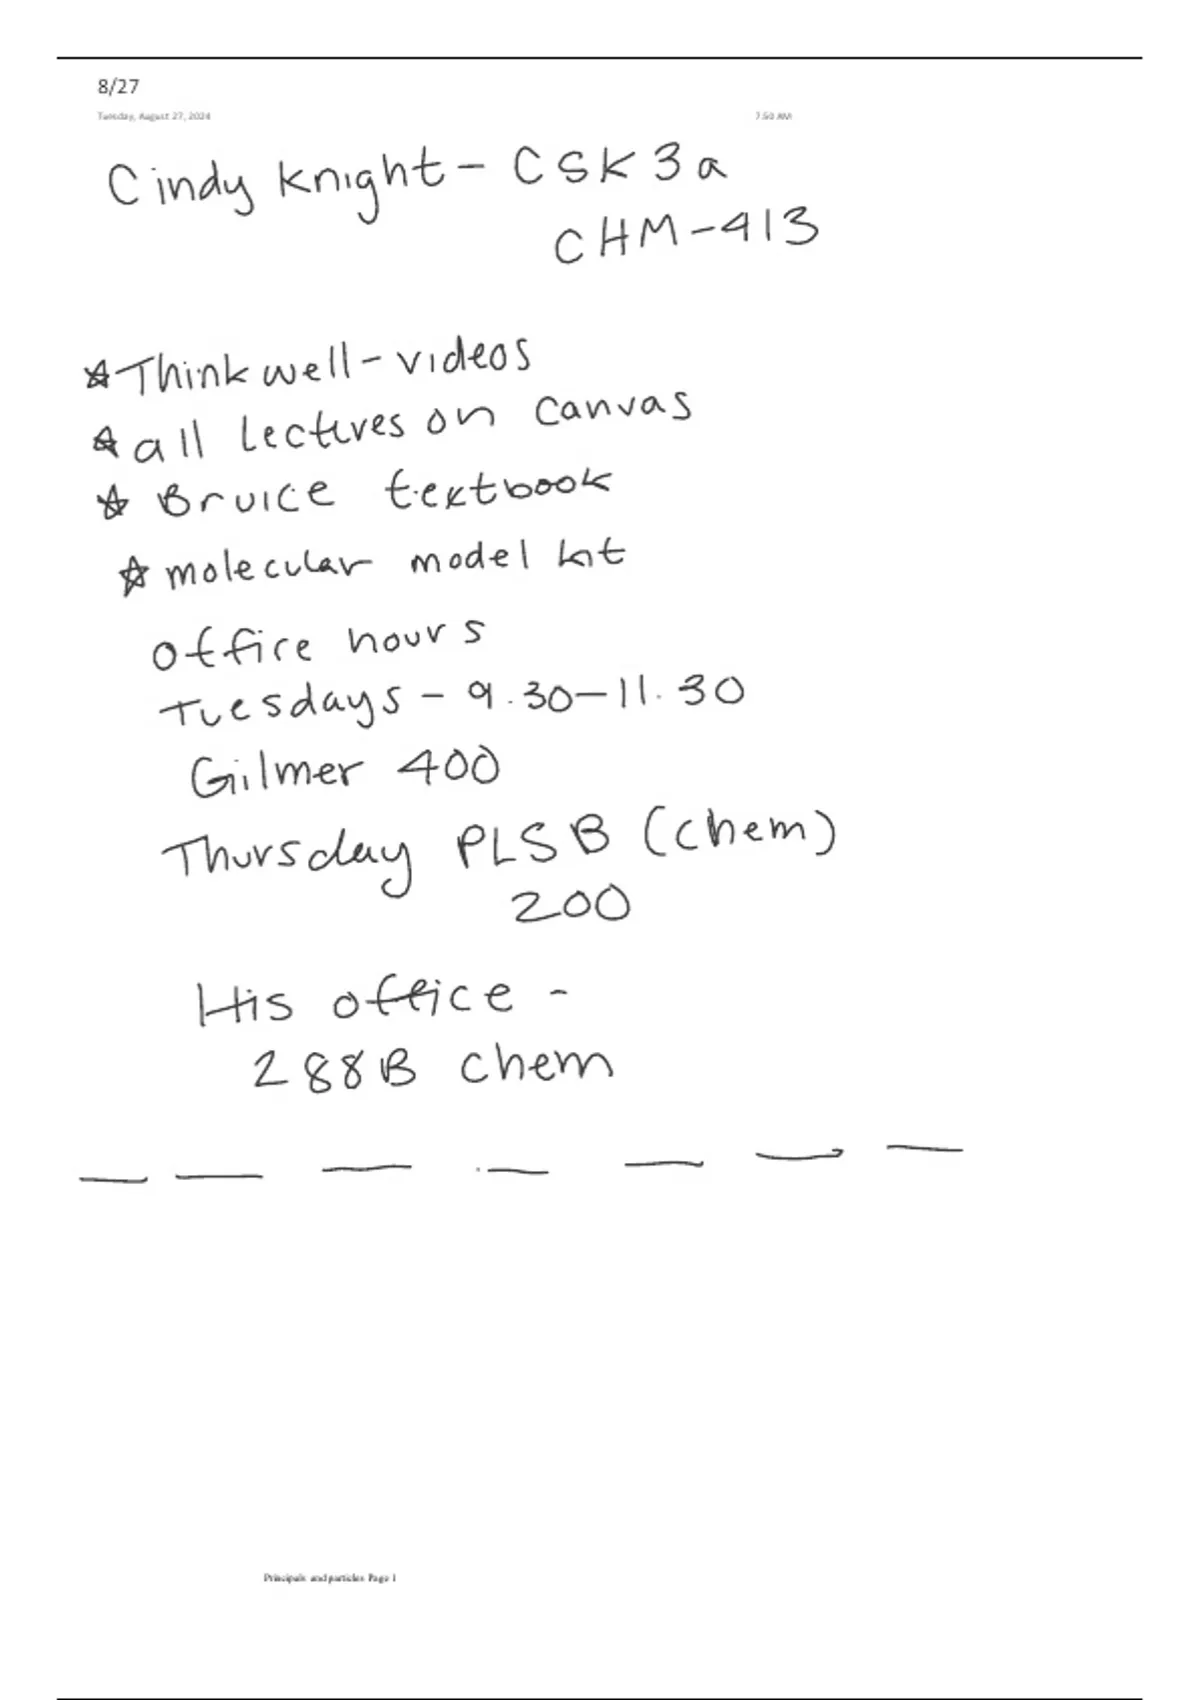 8/27
Tuesday, August 27, 2024 7:50 AM
Cindy Knight - CSK3a
CHM-413
☆ Thinkwell - videos
☆ all lectures on canvas
☆ Bruice textbook
☆ molecular model kit
office hours
Tuesdays - 9.30-11.30
Gilmer 400
Thursday PLSB (chem)
200
His office -
288B chem
Principals and particles Page 1